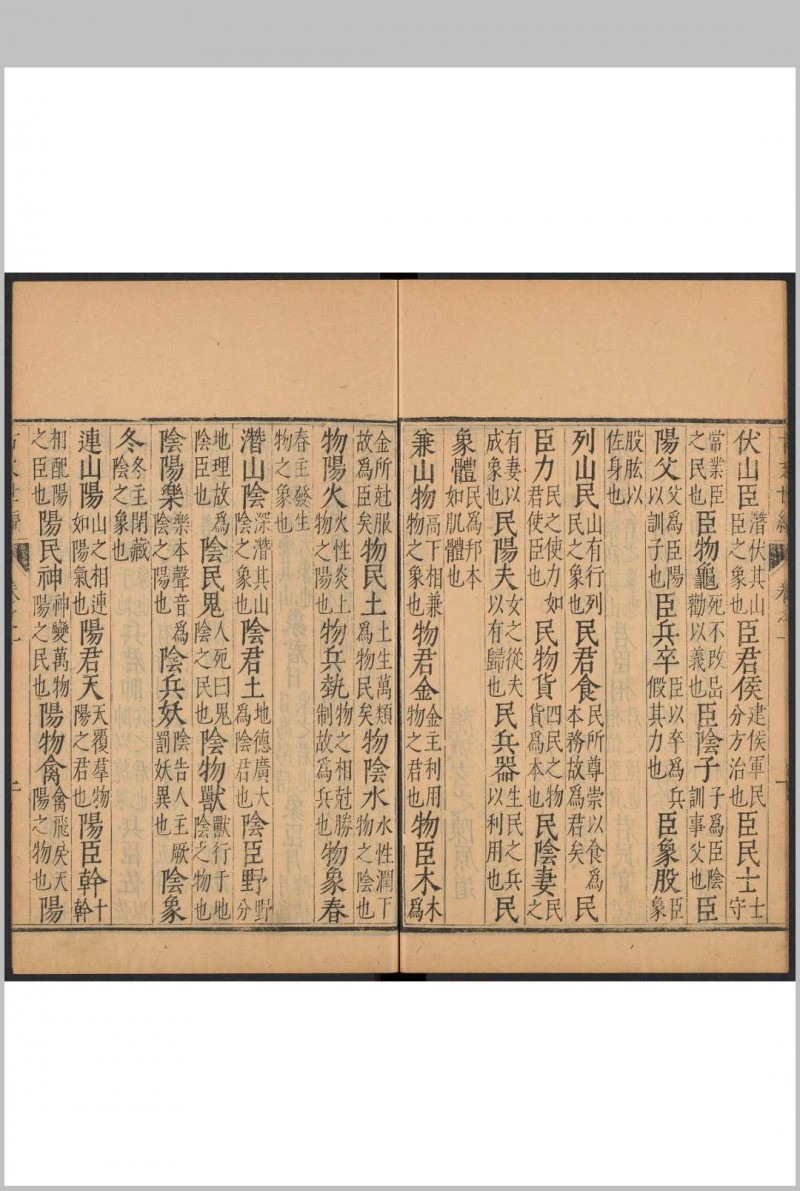 伏山臣潛伏其山臣之象也臣君侯建侯軍民分方治也臣民士士守
常業臣之民也臣物龜死不改品勸以義也臣陰子子為臣陰訓事父也臣
陽父父爲臣陽以訓子也臣兵卒臣以卒爲兵假其力也臣象股臣象
股肱以佐身也
列山民山有行列民之象也民君食民所尊崇以食爲本務故爲君矣民
臣力民之使力如君使臣也民物貨四民之物貨爲本也民陰妻民之
有妻以成象也民陽夫女之從夫以有歸也民兵器生民之兵以利用也民
象體民爲邦本如肌體也
兼山物高下相兼物之象也物君金金主利用物之君也物臣木木爲
金所尅服故爲臣矣物民土土生萬類爲物民矣物陰水水性潤下物之陰也
物陽火火性炎上物之陽也物兵執物之相尅勝制故爲兵也物象春
春主發生物之象也
潛山陰深潛其山陰之象也陰君土地德廣大爲陰君也陰臣野野分
地理故爲陰臣也陰民鬼人死曰鬼陰之民也陰物獸獸行于地陰之物也
陰陽樂樂本聲音爲陰之陽也陰兵妖陰告人主厥罰妖異也陰象
冬冬主閉藏陰之象也
連山陽山之相連如陽氣也陽君天天覆羣物陽之君也陽臣幹十幹
相配陽之臣也陽民神神變萬物陽之民也陽物禽禽飛戾天陽之物也陽